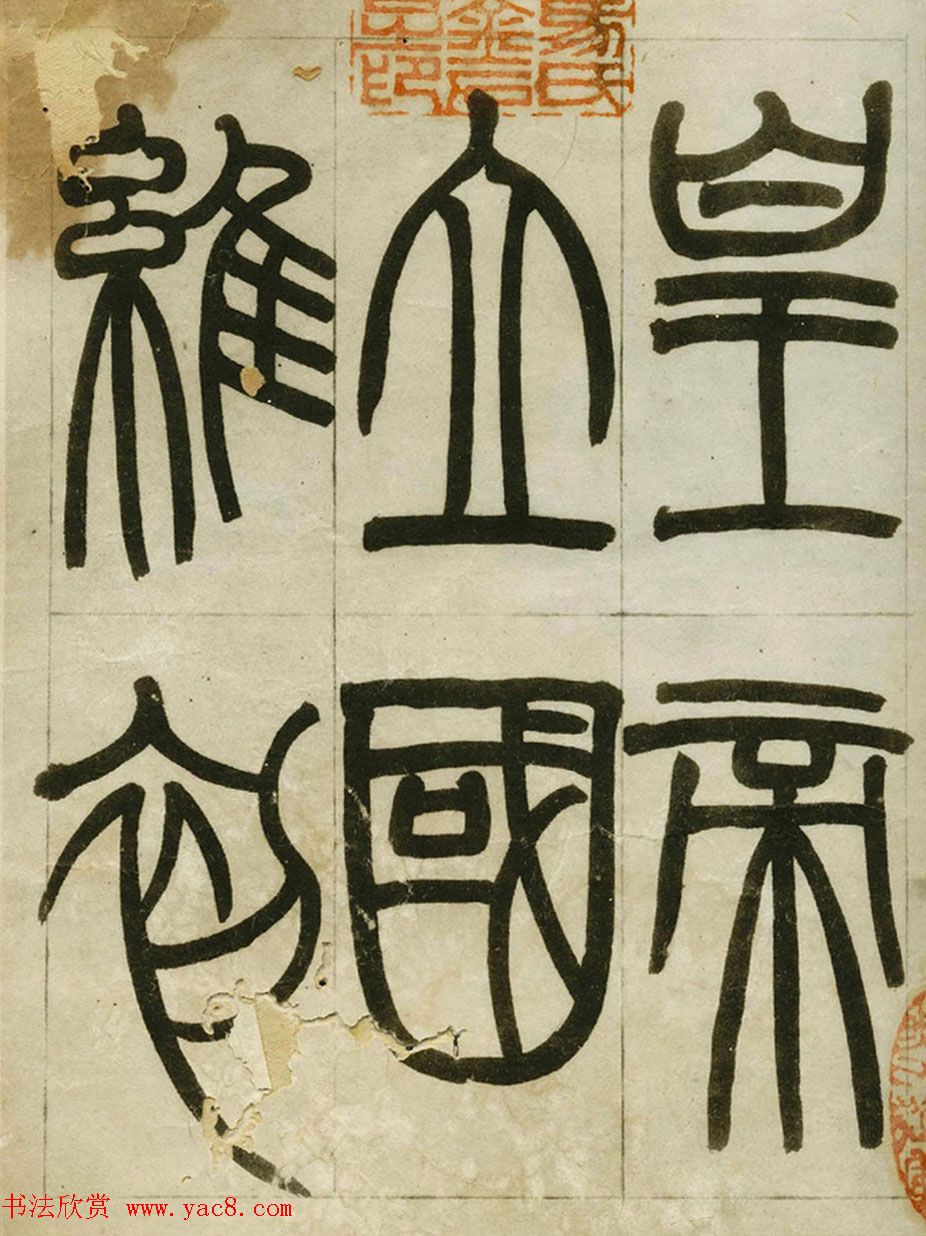 皇帝
立國
維初
书法欣赏 www.yac8.com